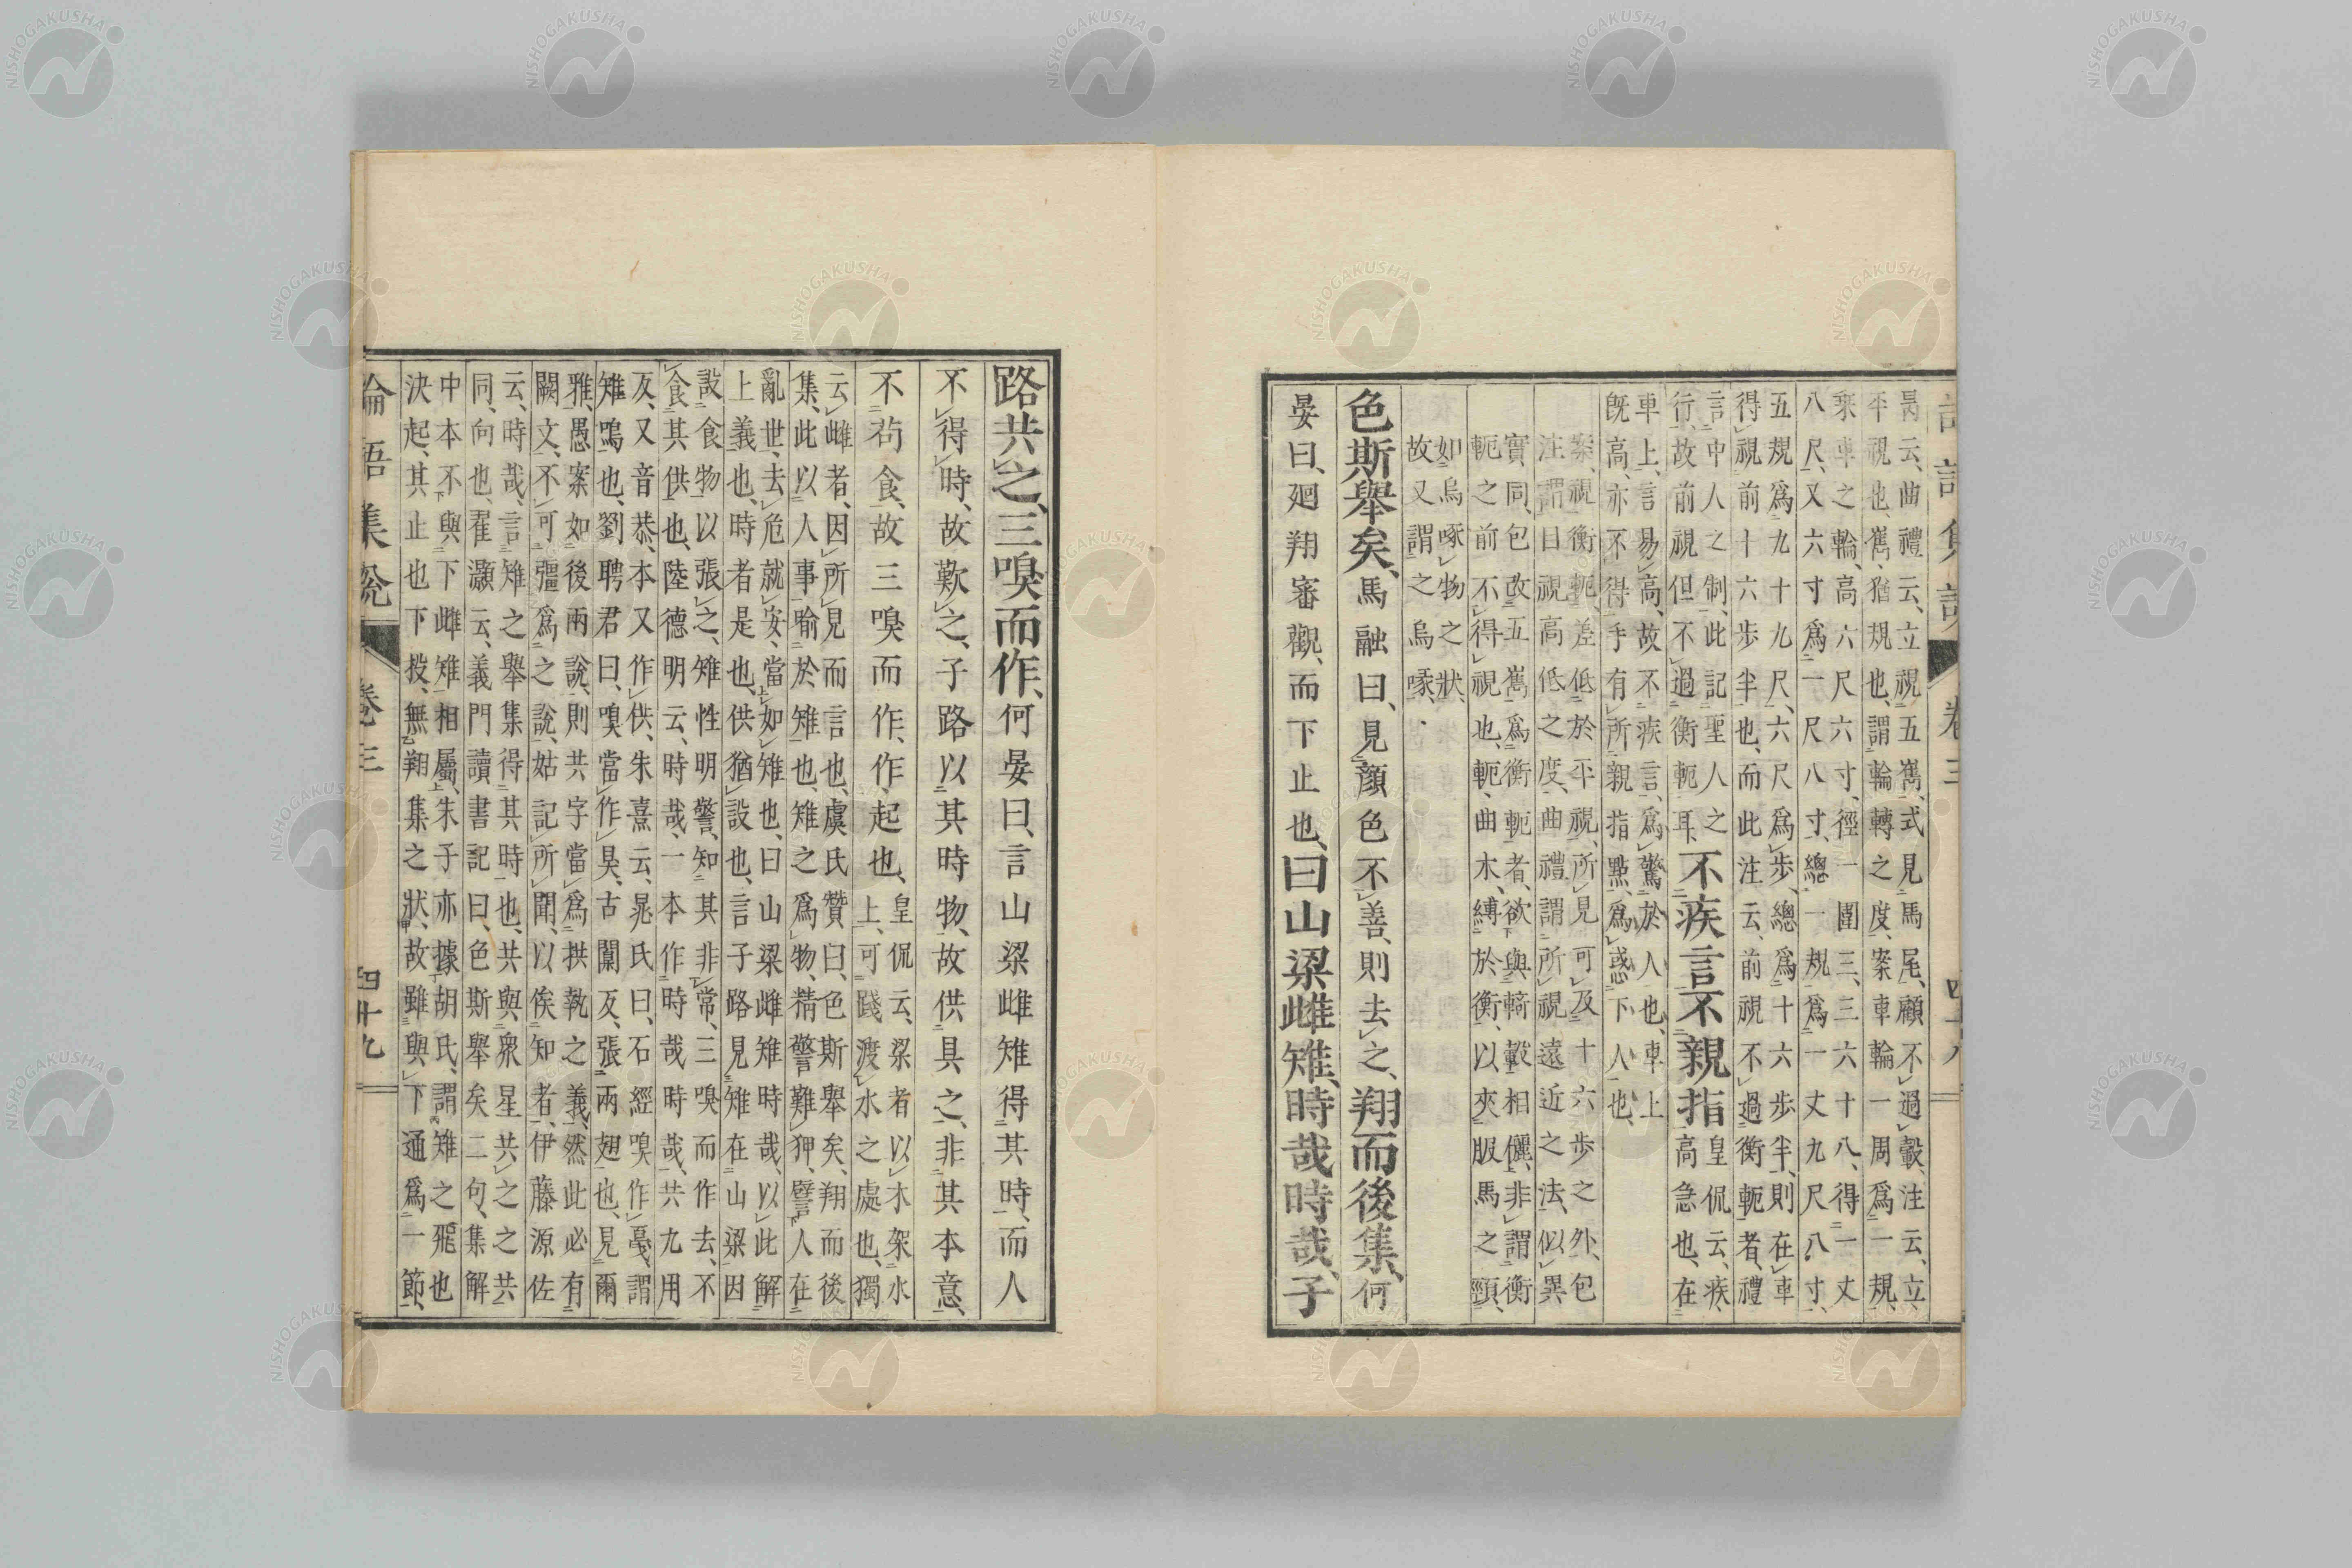 昺云、曲禮云、立視五雟、式見馬尾、顧不過轂、注云、立
平視也、雟、猶規也、謂輪轉之度、案車輪一周爲一規、
乘車之輪、高六尺六寸、徑一圍三、三六十八、得一丈
八尺、又六尺六寸爲一尺八寸、總一規爲一丈九尺八寸、
五規爲九十九尺、六尺爲歩、總爲十六歩半、則在車
得視前十六歩半也、而此注云、前視不過衡軛者、禮
言中人之制、此記聖人之
行、故前視但不過衡軛耳、不疾言不親指皇侃云、疾、
高急也、在
車上、言易高、故不疾言、爲驚於人也、車上
旣高、亦不得手有所親指點、爲惑下人也、
案、視衡軛、差低於平視、所見可及十六歩之外、包
注謂目視高低之度、曲禮謂所視遠近之法、似異
實同、包改五雟爲衡軛者、欲與輢轂相儷、非謂衡
軛之前不得視也、軛、曲木、縛於衡、以夾服馬之頸、
如烏啄物之狀、
故又謂之烏喙、
色斯舉矣、馬融曰、見顏色不善、則去之、翔而後集、何
晏曰、廻翔審觀、而下止也、曰山梁雌雉、時哉時哉、子
路共之、三嗅而作、何晏曰、言山梁雌雉得其時、而人
不得時、故歎之、子路以其時物、故供具之、非其本意、
不苟食、故三嗅而作、作、起也、皇侃云、梁者以木架水
上、可踐渡水之處也、獨
云雌者、因所見而言也、虞氏贊曰、色斯舉矣、翔而後
集、此以人事喻於雉也、雉之爲物、精警難狎、譬人在
亂世、去危就安、當如雉也、曰山梁雌雉時哉、以此解
上義也、時者是也、供猶設也、言子路見雉在山梁因
設食物以張之、雉性明警、知其非常、三嗅而作去、不
食其供也、陸德明云、時哉、一本作時哉時哉、共九用
反、又音恭、本又作供、朱熹云、晁氏曰、石經嗅作戛、謂
雉鳴也、劉聘君曰、嗅當作狊、古闃反、張兩翅也、見爾
雅、愚案如後兩說、則共字當爲拱執之義、然此必有
闕文、不可彊爲之說、姑記所聞、以俟知者、伊藤源佐
云、時哉、言雉之舉集得其時也、共與衆星共之之共
同、向也、翟灝云、義門讀書記曰、色斯舉矣二句、集解
中本不與下雌雉相屬、朱子亦據胡氏、謂雉之飛也
決起、其止也下投、無翔集之狀、故雖與下通爲一節、
論語集說 卷三 四十九